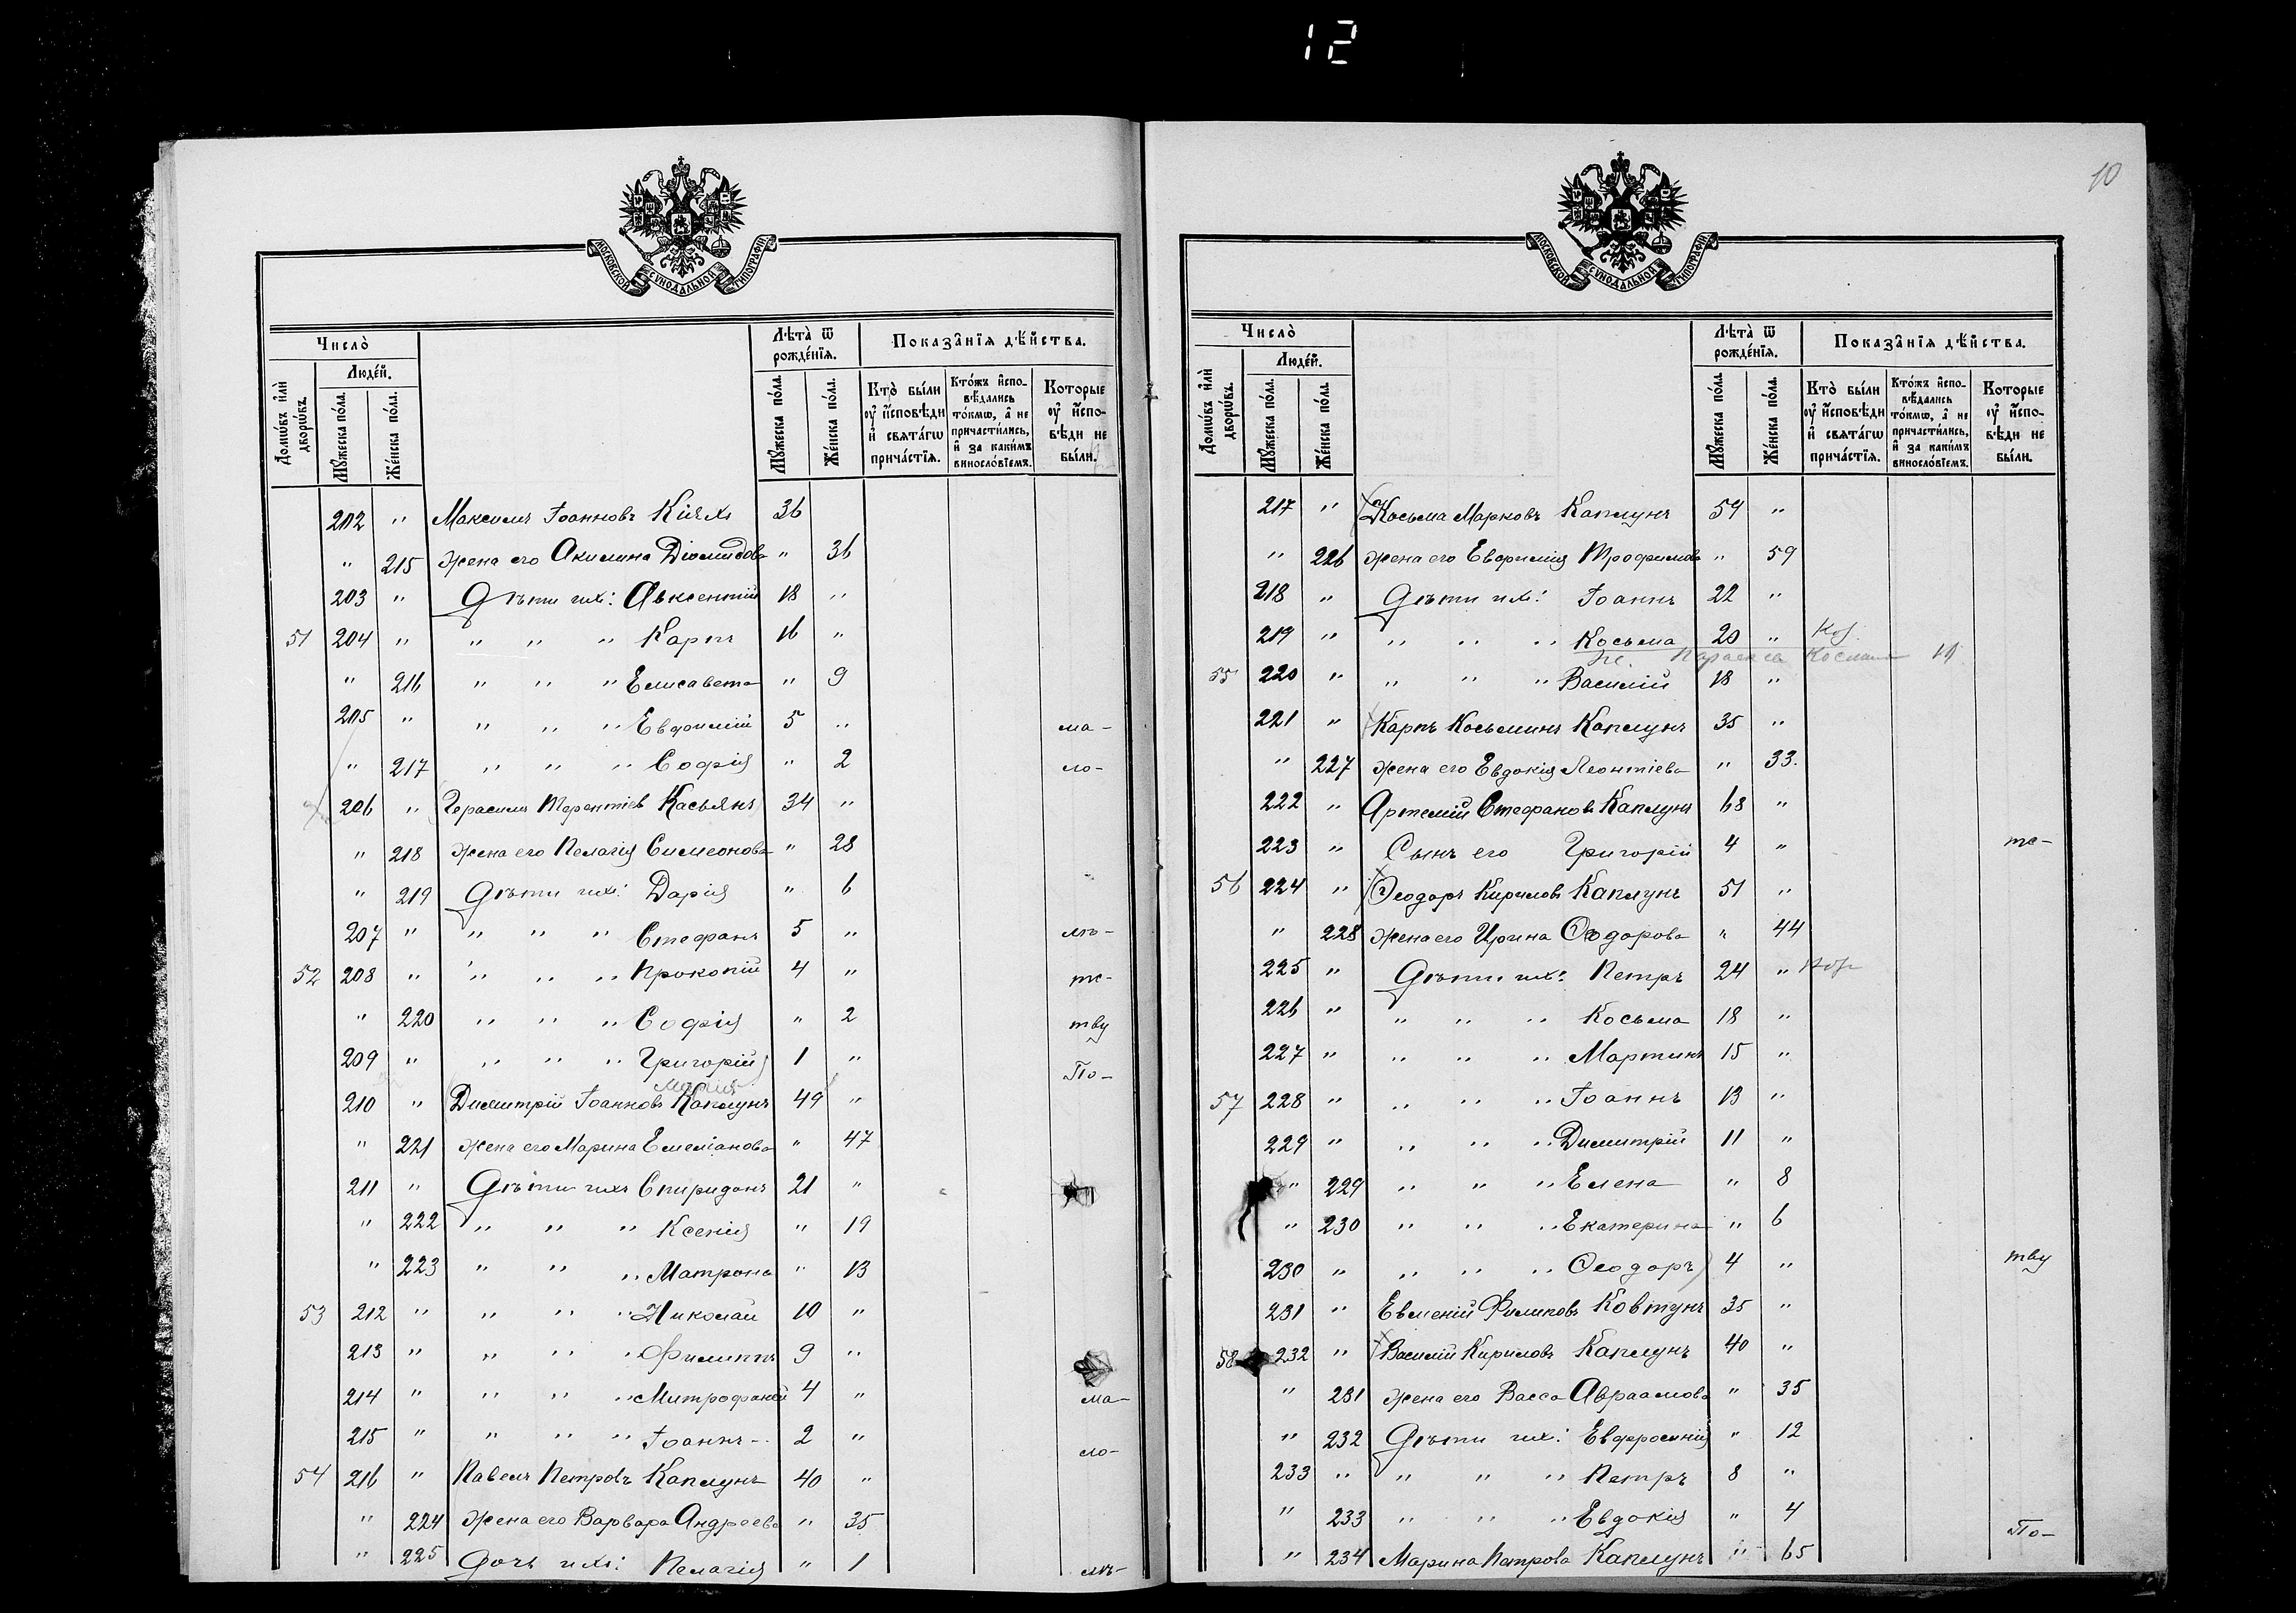 12
10
МОСКОВСКОЙ СѴНОДАЛЬНОЙ ТИПОГРАФІИ
Число̀
Люде́й.
Домѡ́въ и҆лѝ дворѡ́въ.
Мꙋ́жеска по́ла.
Же́нска по́ла.
Лѣ́та ѿ рожде́нїѧ.
Мꙋ́жеска по́ла.
Же́нска по́ла.
Показа̑нїѧ дѣ́йства.
Кто̀ бы́ли оу҆ и҆сповѣди и҆ свѧта́гѡ прича́стїѧ.
Кто́жъ и҆спо-вѣ́дались то́кмѡ, а҆ не причасти́лись, и҆ за каки́мъ винослѡ́вїемъ.
Которые оу҆ и҆спо-вѣди не бы́ли.
202 " Максимъ Іоанновъ Кіяхъ 36
" 215 Жена его Акилина Діомидова " 36
203 " Дѣти ихъ: Авксентій 18 "
51 204 " " " " Карпъ 16 "
" 216 " " " Елисавета " 9
205 " " " " Евдокимій 5 " ма-
" 217 " " " Софія " 2 ло-
206 " Герасимъ Терентіев Касьянъ 34 "
" 218 Жена его Пелагія Симеонова " 28
" 219 Дѣти ихъ: Дарія " 6
207 " " " " Стефанъ 5 " лѣ-
52 208 " " " " Прокопій 4 " тс-
" 220 " " " Софія " 2 тву
209 " " " " Григорій 1 " По-
Марія
210 " Димитрій Іоанновъ Каплунъ 49 "
" 221 Жена его Марина Емеліанова " 47
211 " Дѣти ихъ Спиридонъ 21 "
" 222 " " " Ксенія " 19
" 223 " " " Матрона " 13
53 212 " " " " Николай 10 "
213 " " " " Филиппъ 9 "
214 " " " " Митрофаній 4 " ма-
215 " " " " Іоаннъ - 2 " ло-
54 216 " Павелъ Петровъ Каплунъ 40 "
" 224 Жена его Варвара Андреева " 35
" 225 Дочь ихъ: Пелагія " 1 лѣ-
МОСКОВСКОЙ СѴНОДАЛЬНОЙ ТИПОГРАФІИ
Число̀
Люде́й.
Домѡ́въ и҆лѝ дворѡ́въ.
Мꙋ́жеска по́ла.
Же́нска по́ла.
Лѣ́та ѿ рожде́нїѧ.
Мꙋ́жеска по́ла.
Же́нска по́ла.
Показа̑нїѧ дѣ́йства.
Кто̀ бы́ли оу҆ и҆сповѣди и҆ свѧта́гѡ прича́стїѧ.
Кто́жъ и҆спо-вѣ́дались то́кмѡ, а҆ не причасти́лись, и҆ за каки́мъ винослѡ́вїемъ.
Которые оу҆ и҆спо-вѣди не бы́ли.
217 " Косьма Марковъ Каплунъ 59 "
" 226 Жена его Евфимія Трофимова " 59
218 " Дѣти ихъ: Іоаннъ 22 "
219 " " " " Косьма 20 "
Параскева Космина 19
55 220 " " " " Василій 18 "
221 " Карпъ Косьминъ Каплунъ 35 "
" 227 Жена его Евдокія Леонтіева " 33.
222 " Артемій Стефановъ Каплунъ 68 "
223 " Сынъ его Григорій 4 " тс-
56 224 " Ѳеодоръ Кириловъ Каплунъ 51 "
" 228 Жена его Ирина Ѳеодорова " 44
225 " Дѣти ихъ: Петръ 24 "
226 " " " " Косьма 18 "
227 " " " " Мартинъ 15 "
57 228 " " " " Іоаннъ 13 "
229 " " " " Димитрій 11 "
" 229 " " " Елена " 8
" 230 " " " Екатерина " 6
230 " " " " Ѳеодоръ 4 " тву
231 " Евмений Филиповъ Ковтунъ 35 "
58 232 " Василій Кириловъ Каплунъ 40 "
" 231 Жена его Васса Авраамова " 35
" 232 Дѣти ихъ: Евфросинія " 12
233 " " " " Петръ 8 "
" 233 " " " Евдокія " 4
По-
" 234 Марина Петрова Каплунъ " 65